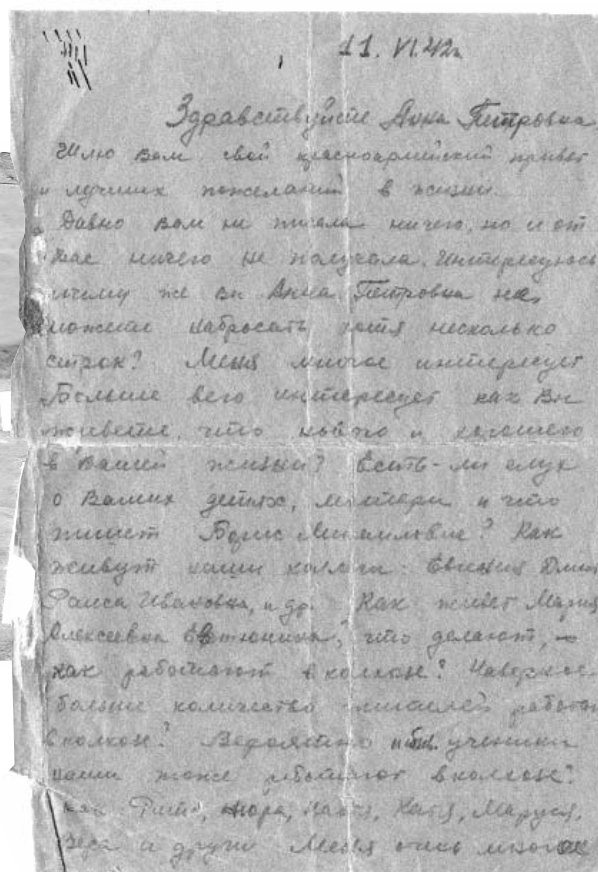 11. VI. 42г.
Здравствуйте Анна Петровна
Шлю вам свой красноармейский привет
и лучших пожеланий в жизни.
Давно вам не писала ничего, но и от
вас ничего не получала. Интересуюсь
почему же вы Анна Петровна не
можете набросать хотя несколько
строк? Меня многое интересует
Больше всего интересует как Вы
живете, что нового и хорошего
в Вашей жизни? Есть-ли слух
о Ваших детях, матери и что
пишет Борис Михайлович? Как
живут наши коллеги: Евгения Дмит
Раиса Ивановна, и др. Как живет Мария
Алексеевна, что делают,
как работают в колхозе? Наверное
больше количество работают
в колхозе? Вероятно и быв. ученики
наши тоже работают в колхозе?
как Нюра, Катя, Маруся,
Вера и другие Меня очень многое